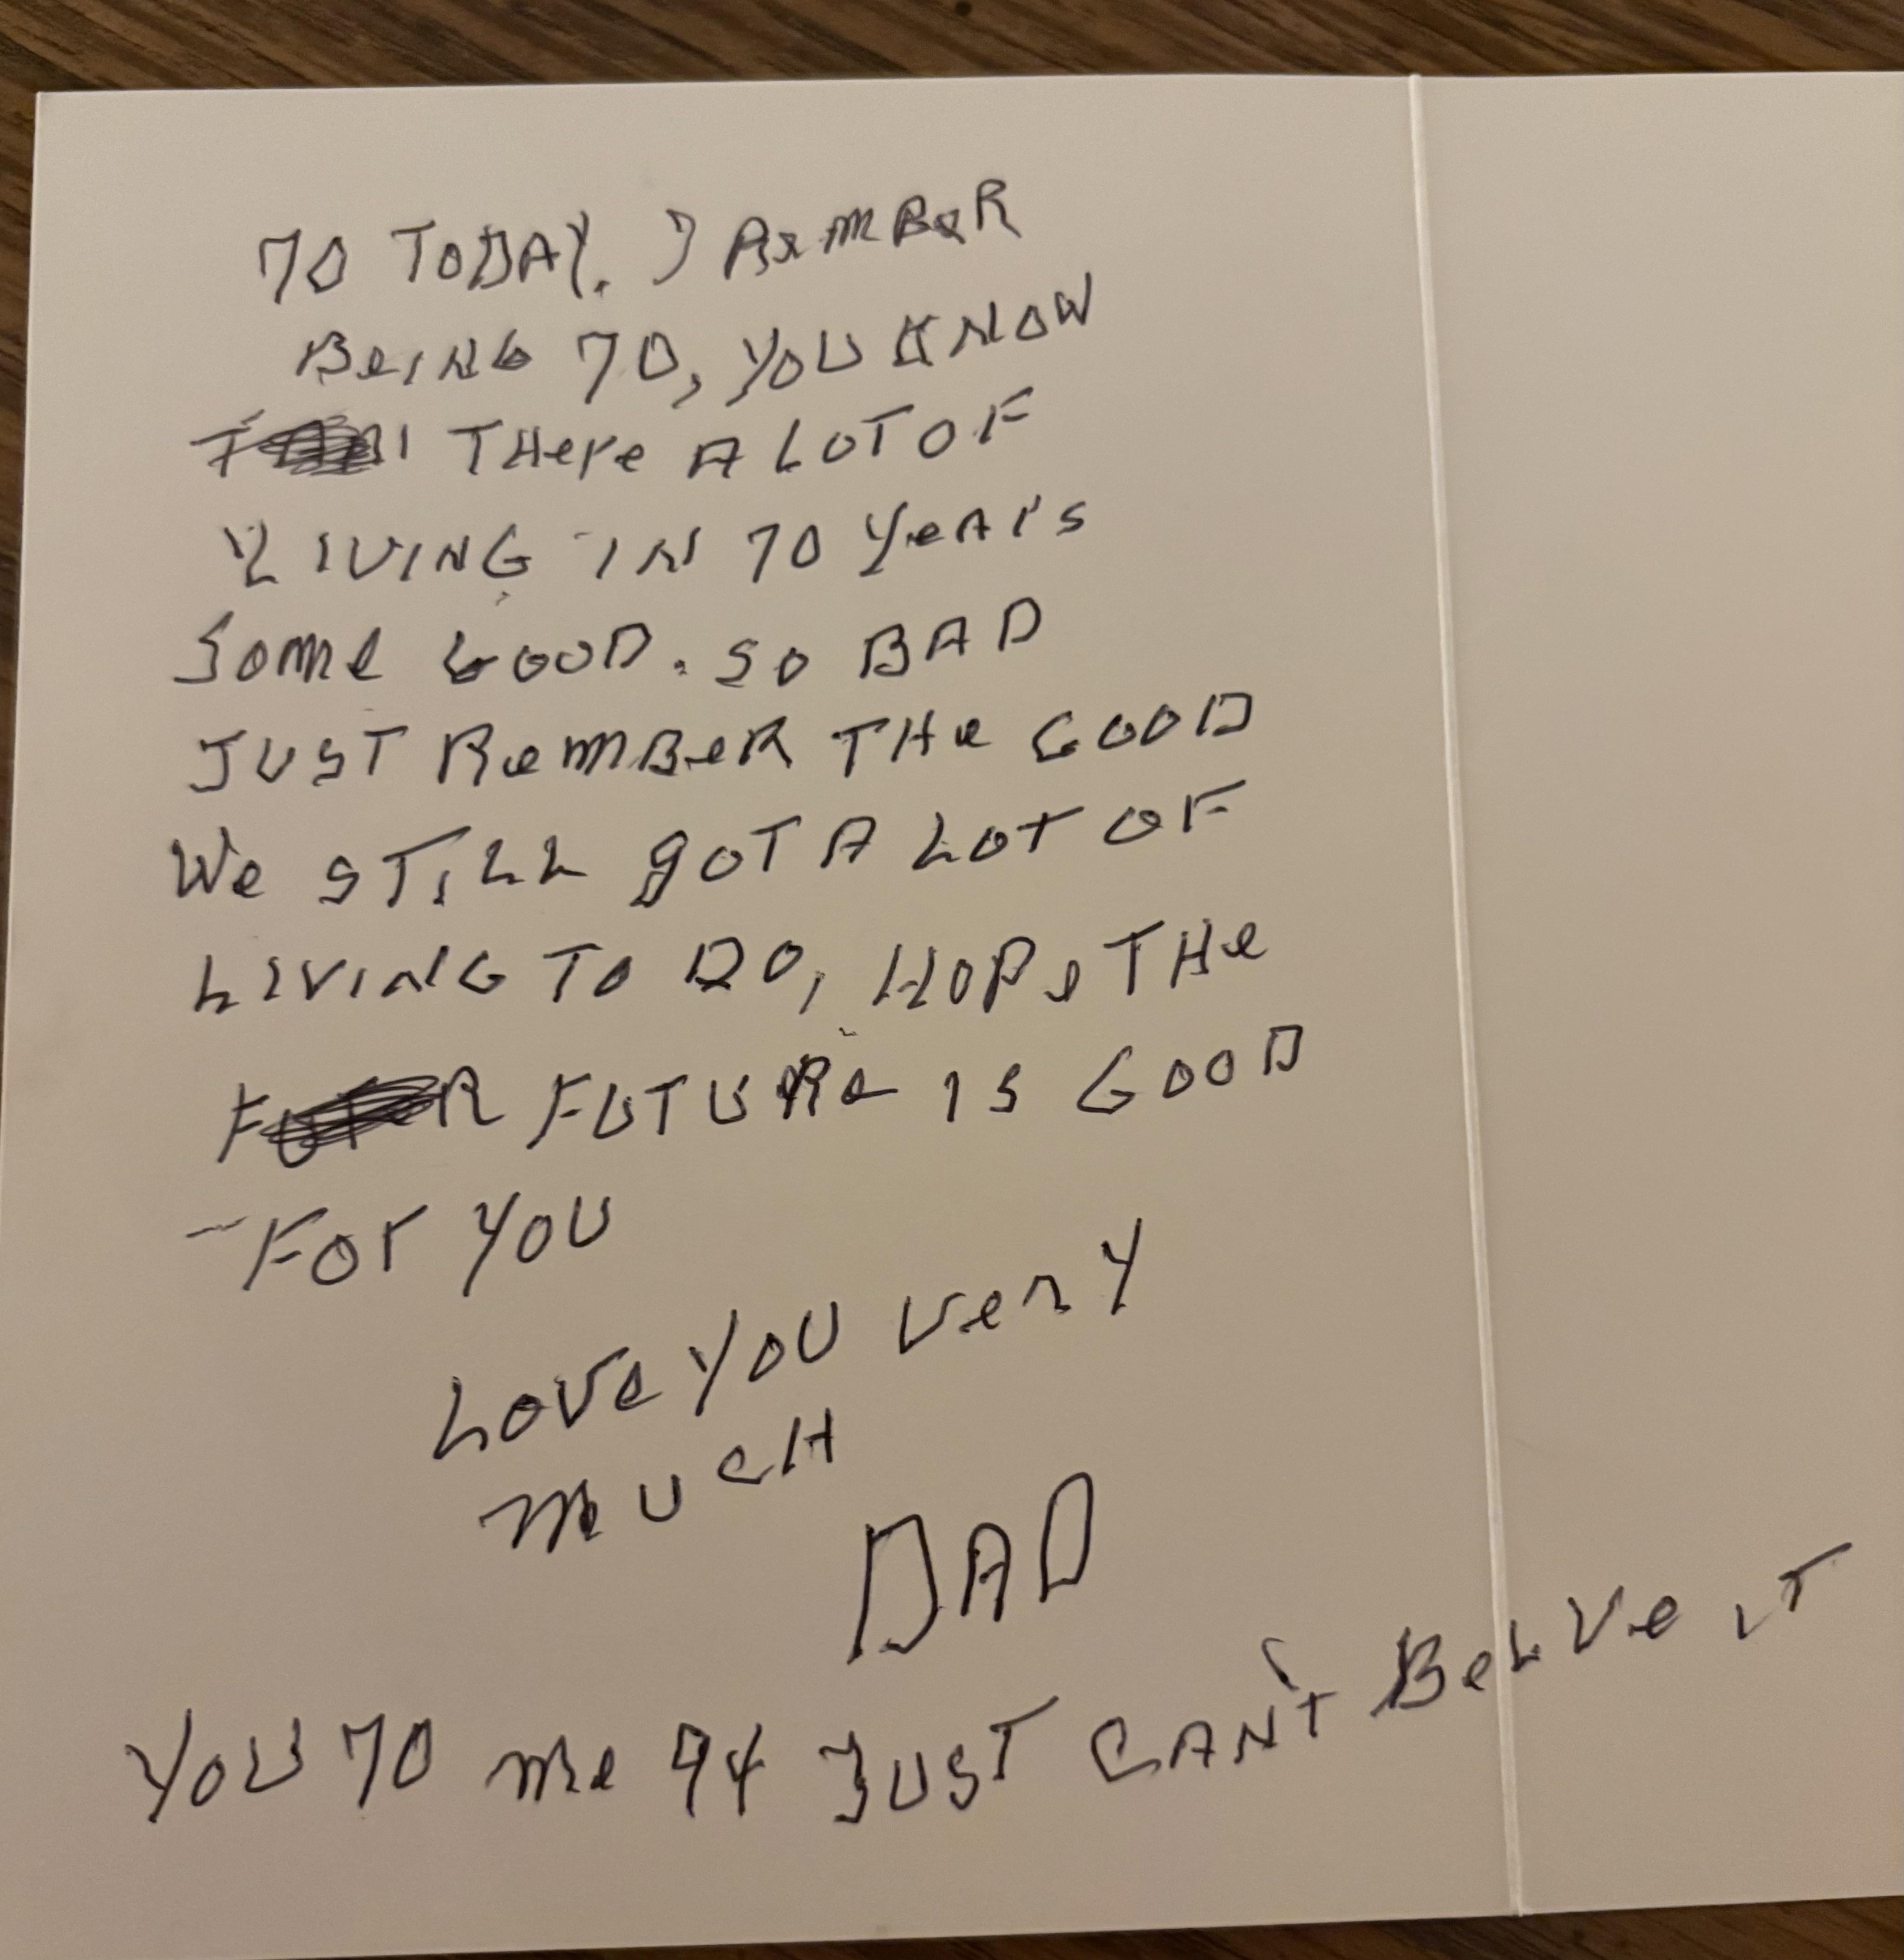 70 TODAY. I REMBER
BeING 70, YOU KNOW
THere A LOT OF
LIVING IN 70 YeArs
Some GOOD. SO BAD
JUST ReMBeR THe GOOD
We STILL gOT A LOT OF
LIVING TO DO, HOPe THe
FUTURe IS GOOD
FOr YOU
LOVe YOU VerY
mUCH
DAD
YOU 70 me 94 JUST CAN'T BeLVe IT